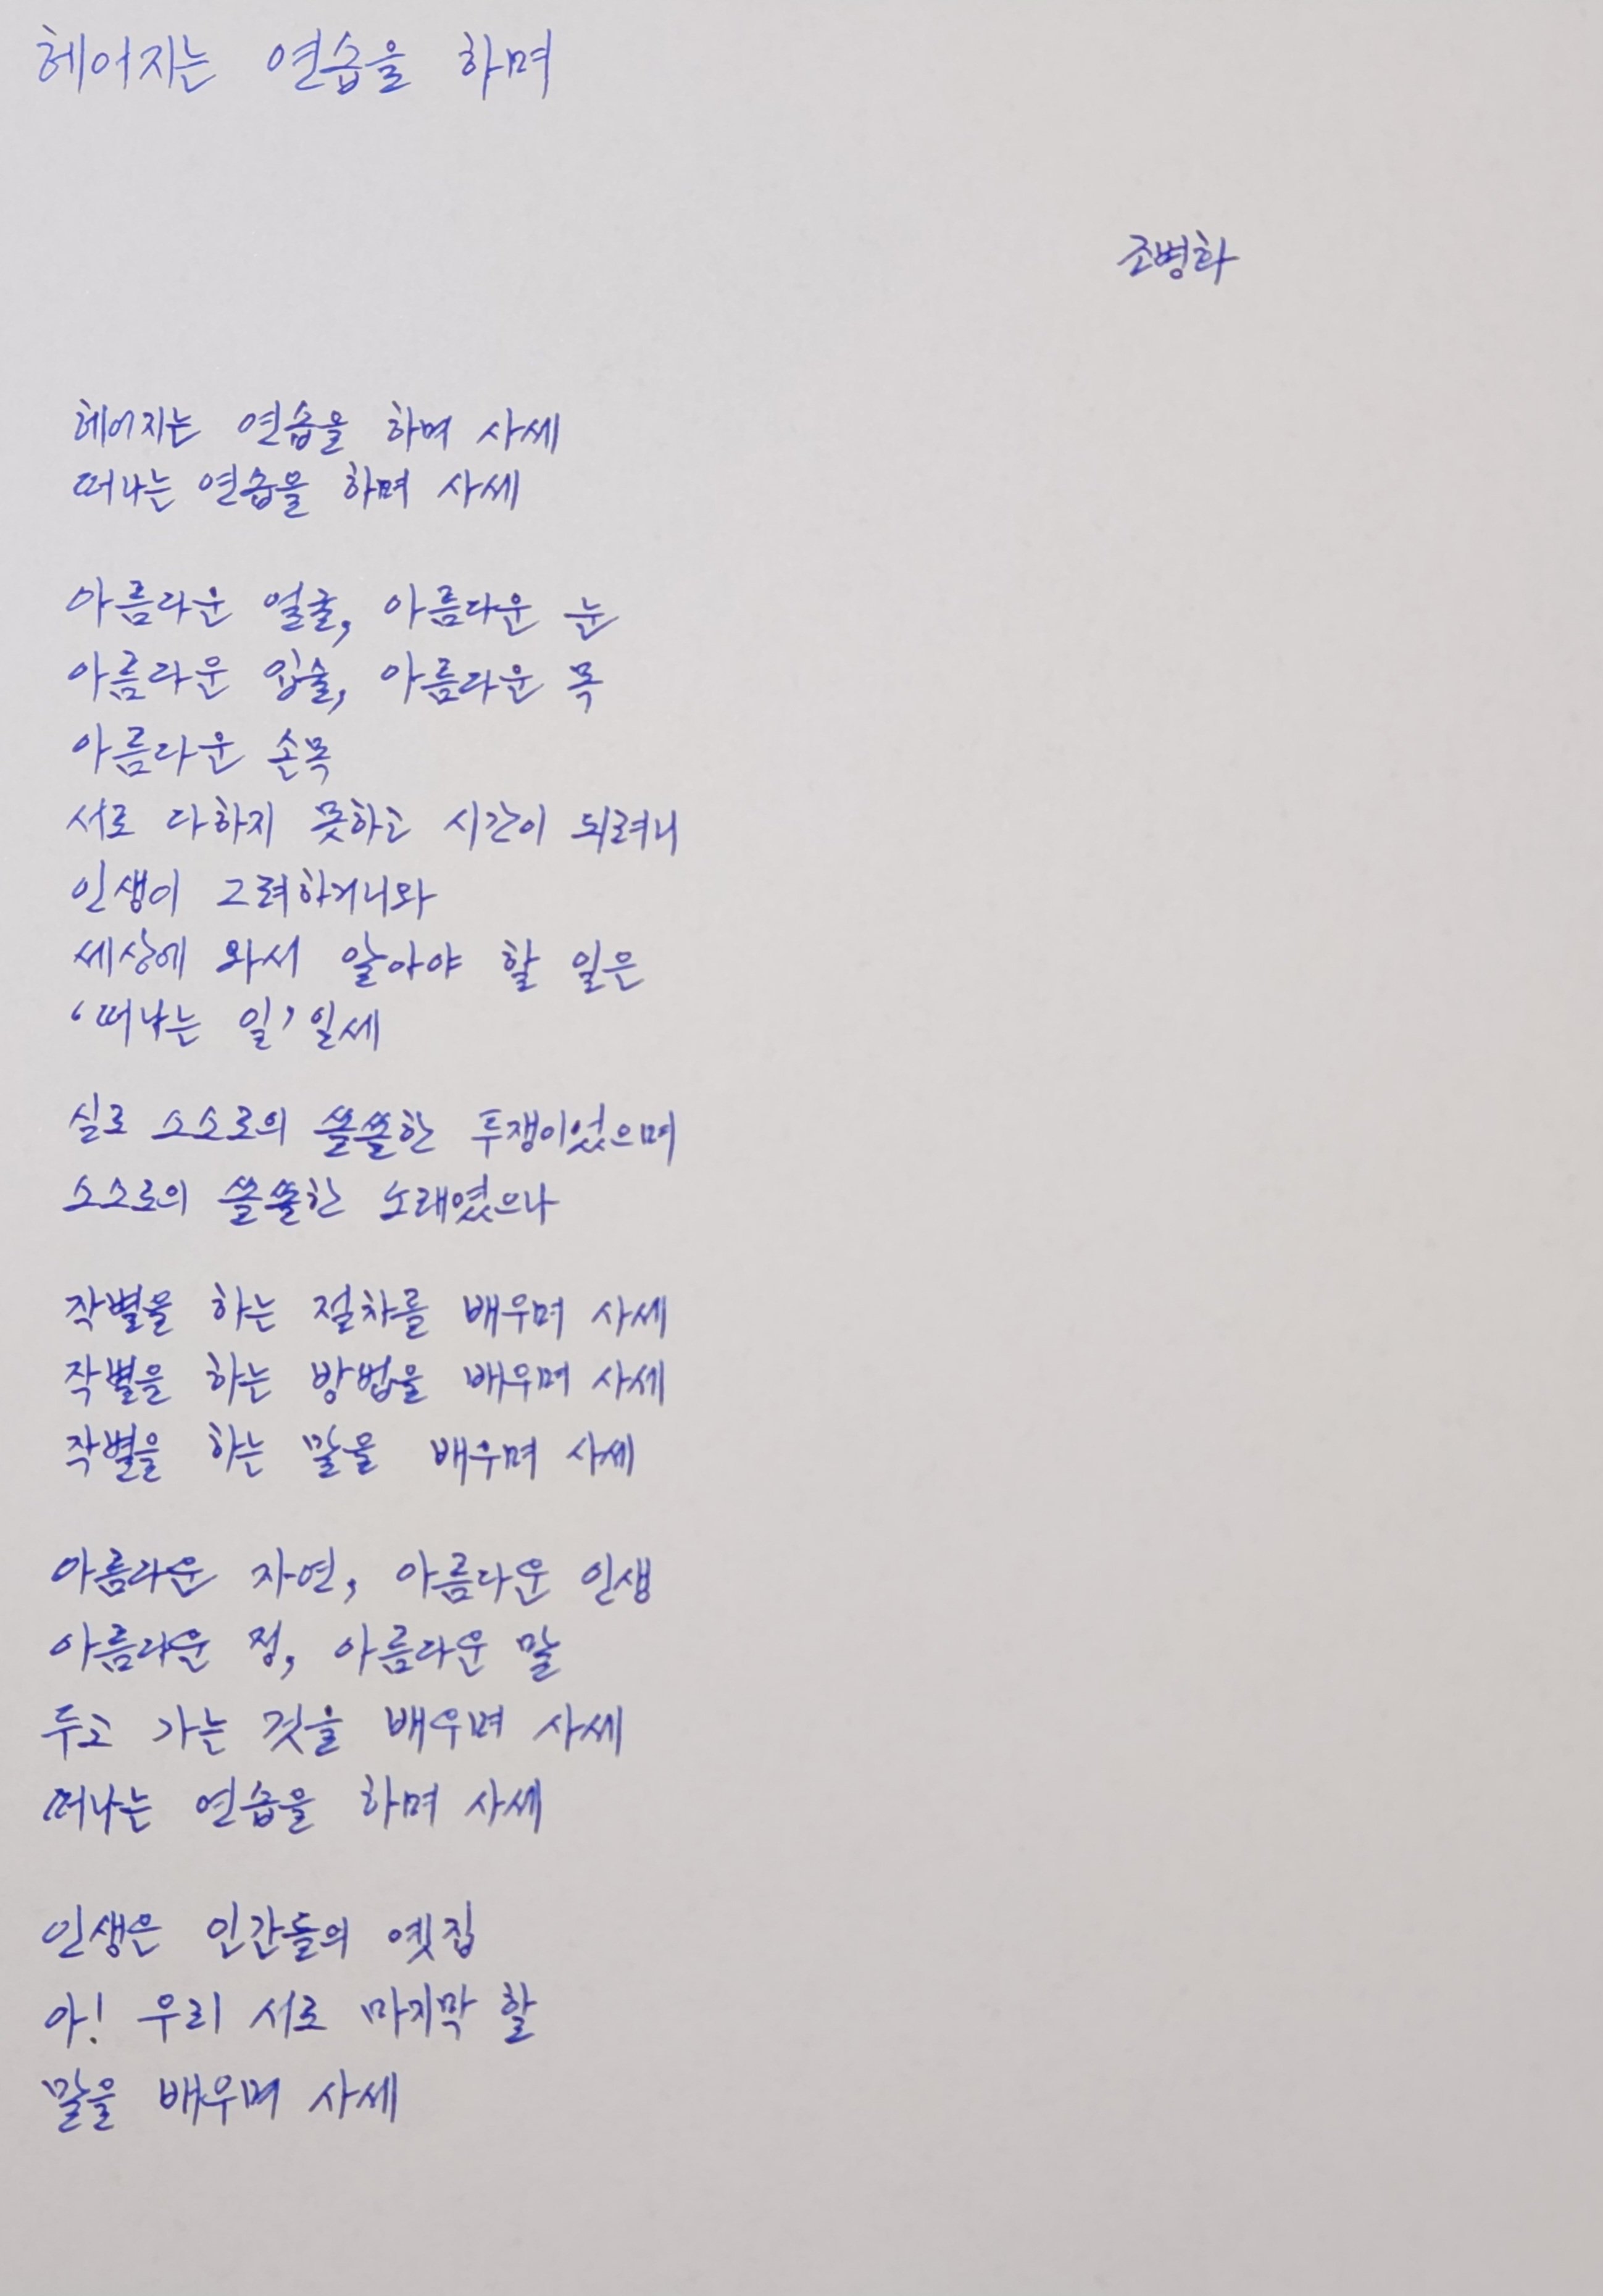 헤어지는 연습을 하며
조병화
헤어지는 연습을 하며 사세
떠나는 연습을 하며 사세
아름다운 얼굴, 아름다운 눈
아름다운 입술, 아름다운 목
아름다운 손목
서로 다하지 못하고 시간이 되려니
인생이 그러하거니와
세상에 와서 알아야 할 일은
‘떠나는 일’일세
실로 스스로의 쓸쓸한 투쟁이었으며
스스로의 쓸쓸한 노래였으나
작별을 하는 절차를 배우며 사세
작별을 하는 방법을 배우며 사세
작별을 하는 말을 배우며 사세
아름다운 자연, 아름다운 인생
아름다운 정, 아름다운 말
두고 가는 것을 배우며 사세
떠나는 연습을 하며 사세
인생은 인간들의 옛집
아! 우리 서로 마지막 할
말을 배우며 사세